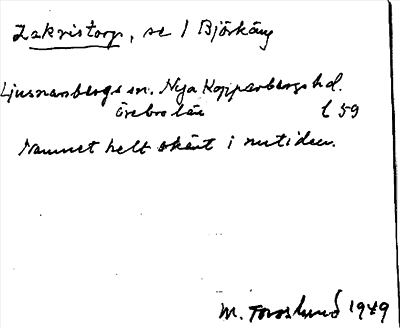 Zakristorp, se 1 Björkäng
Ljusnarsbergs sn. Nya Kopparbergs hd.
Örebro län l 59
Namnet helt okänt i nutiden.
M. Toroslund 1949